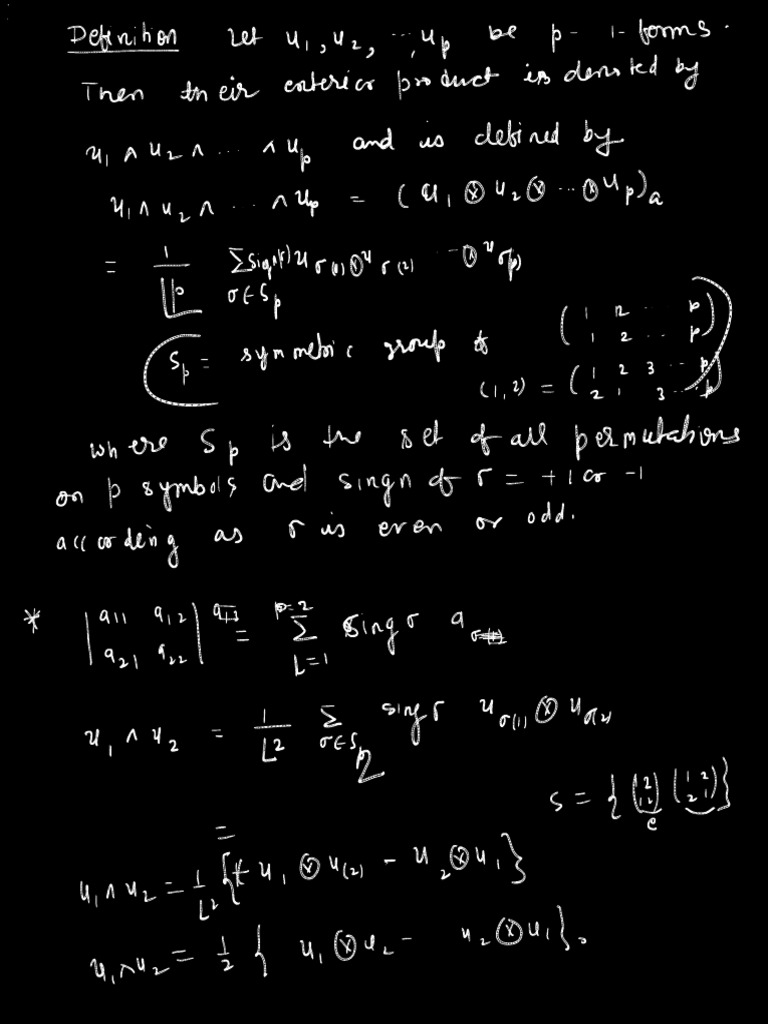 Definition Let u₁, u₂, ..., uₚ be p- 1-forms.
Then their exterior product is denoted by
u₁ ∧ u₂ ∧ ... ∧ uₚ and is defined by
u₁ ∧ u₂ ∧ ... ∧ uₚ = (u₁ ⊗ u₂ ⊗ ... ⊗ uₚ)ₐ
= 1/|p Σ_{σ∈Sₚ} sign(σ) u_{σ(1)} ⊗ u_{σ(2)} ... ⊗ u_{σ(p)}
Sₚ = symmetric group of (1 2 ... p / 1 2 ... p)
(1,2) = (1 2 3 ... p / 2 1 3 ... p)
where Sₚ is the set of all permutations
on p symbols and singn of σ = +1 or -1
according as σ is even or odd.
* |a₁₁ a₁₂ / a₂₁ a₂₂| = Σ_{L=1}^{p=2} sing σ a
u₁ ∧ u₂ = 1/|2 Σ_{σ∈S₂} sing σ u_{σ(1)} ⊗ u_{σ(2)}
S = {(1 2 / 1 2) (1 2 / 2 1)}
e
=
u₁ ∧ u₂ = 1/|2 {+ u₁ ⊗ u₍₂₎ - u₂ ⊗ u₁}
u₁ ∧ u₂ = 1/2 { u₁ ⊗ u₂ - u₂ ⊗ u₁}.